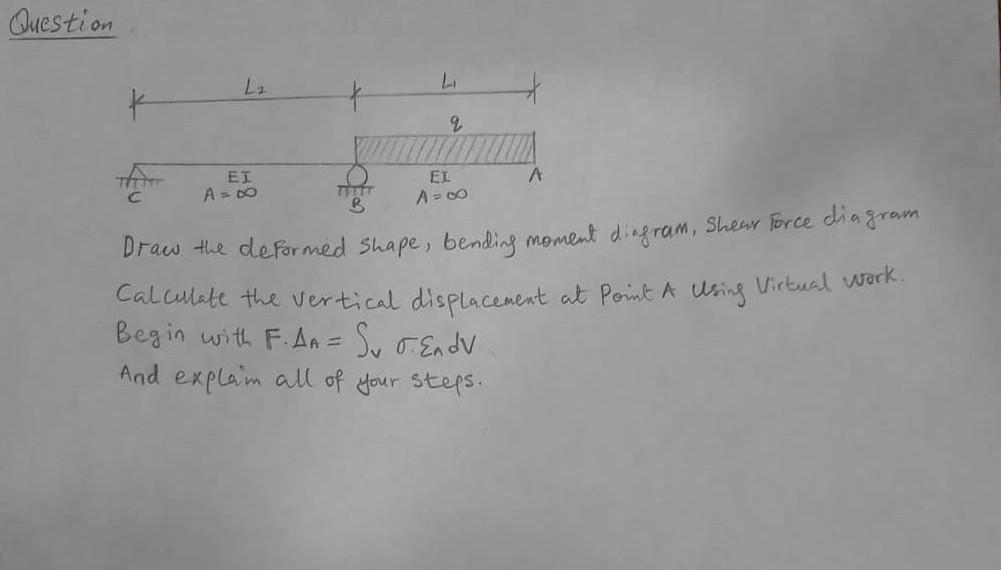 Question
L2 L1
q
EI EI A
C A = ∞ B A = ∞
Draw the deformed shape, bending moment diagram, Shear Force diagram
Calculate the vertical displacement at Point A Using Virtual work.
Begin with F.ΔA = ∫v σ.εA dV
And explain all of your steps.